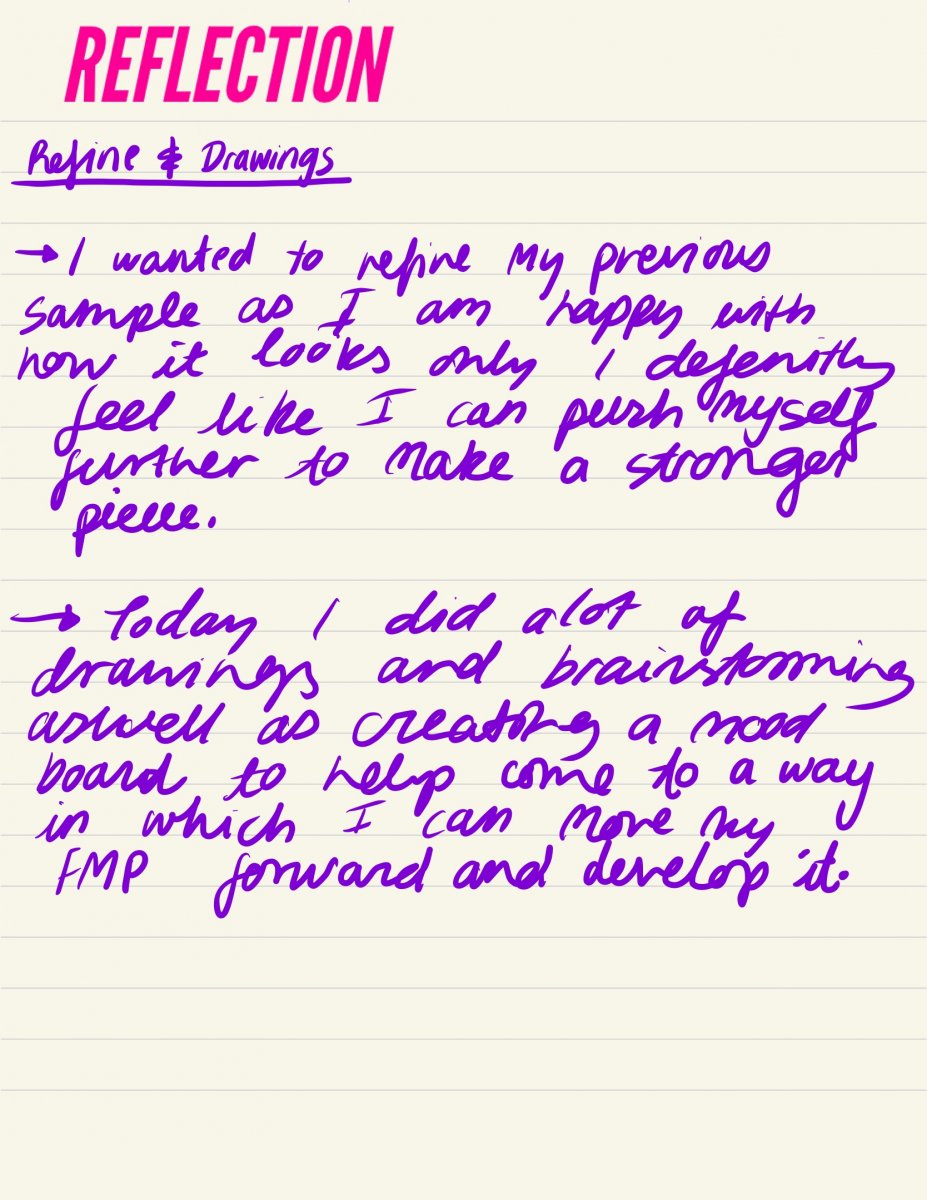 REFLECTION
Refine & Drawings
→ I wanted to refine my previous
sample as I am happy with
how it looks only I defenitly
feel like I can push myself
further to make a stronger
piece.
→ Today I did alot of
drawings and brainstorming
aswell as creating a mood
board to help come to a way
in which I can move my
FMP forward and develop it.